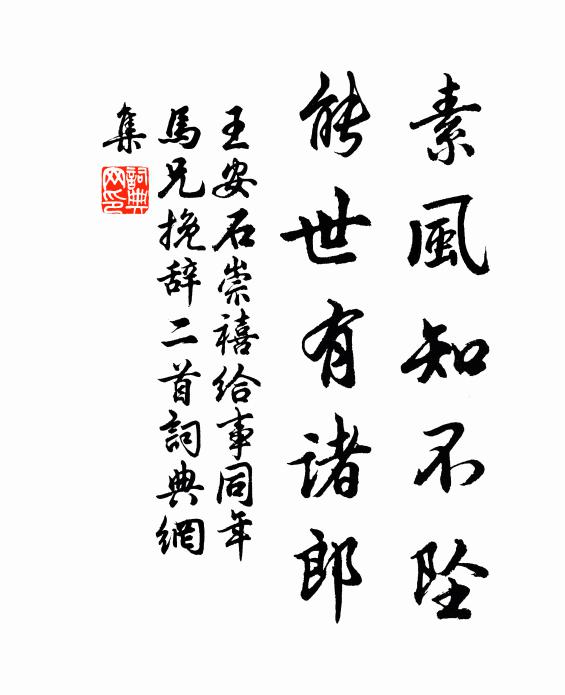 素風知不墜
能世有诸郎
王安石崇禧给事同年
馬兄挽辞二首詞典網
集
詞典网印